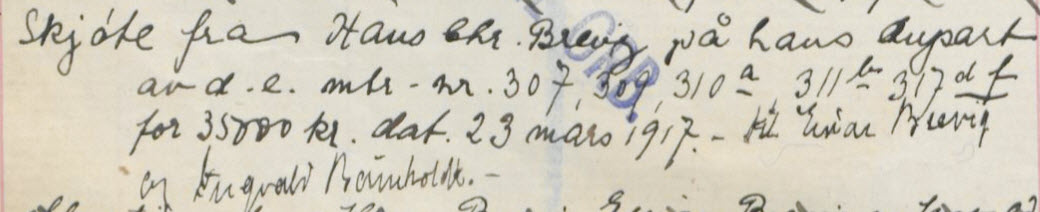 Skjøte fra Hans Chr. Brevig på hans anpart
av d. e. mtr-nr. 307, 309, 310 a, 311 b 317 d f
for 35000 kr. dat. 23 mars 1917. – til Einar Brevig
og Ingvald Bamholdt. –